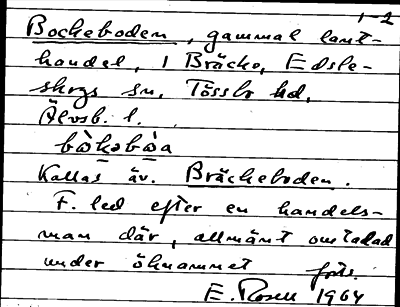 1-2
Bockeboden, gammal lant-
handel, i Bräcke, Edsle-
skogs sn, Tössbo hd,
Älvsb. l.
bòkəbòa
Kallas äv. Bräckeboden.
F. led efter en handels-
man där, allmänt omtalad
under öknamnet forts.
E. Rosell 1964